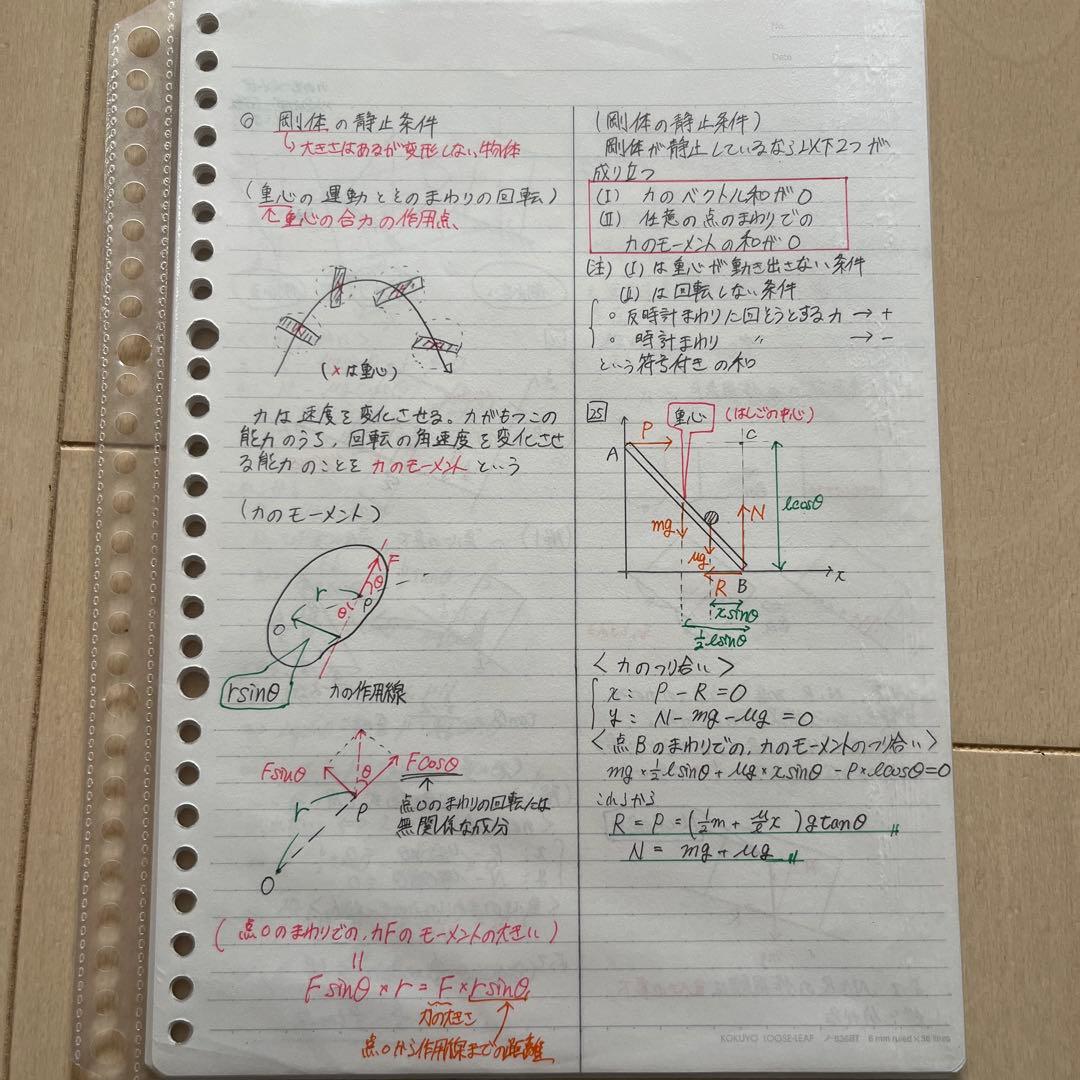 No.
Date
◎ 剛体の静止条件
↳大きさはあるが変形しない物体
(重心の運動とそのまわりの回転)
↖重心の合力の作用点、
(×は重心)
力は速度を変化させる。力がもつこの
能力のうち、回転の角速度を変化させ
る能力のことを力のモーメントという
(力のモーメント)
F
r
θ
θ
P
O
rsinθ
力の作用線
Fsinθ
θ
Fcosθ
r
P
点Oのまわりの回転には
無関係な成分
O
(点Oのまわりでの,力Fのモーメントの大きい)
||
Fsinθ×r = F×rsinθ
力の大きさ
点Oから作用線までの距離
(剛体の静止条件)
剛体が静止しているなら以下2つが
成り立つ
(I) 力のベクトル和が0
(II) 任意の点のまわりでの
力のモーメントの和が0
(注) (I)は重心が動き出さない条件
(II)は回転しない条件
○反時計まわりに回そうとする力→+
○時計まわり 〃 →−
という符号付きの和
25
重心
(はしごの中心)
P
A
C
N
mg
μg
lcosθ
R
B
x
xsinθ
½lsinθ
<力のつり合い>
x: P−R=0
y: N−mg−μg=0
<点Bのまわりでの,力のモーメントのつり合い>
mg×½lsinθ+μg×xsinθ−P×lcosθ=0
これらから
R=P=(½m+μ/l x)gtanθ 〃
N= mg+μg 〃
KOKUYO LOOSE-LEAF ノ-836BT 6 mm ruled×36 lines